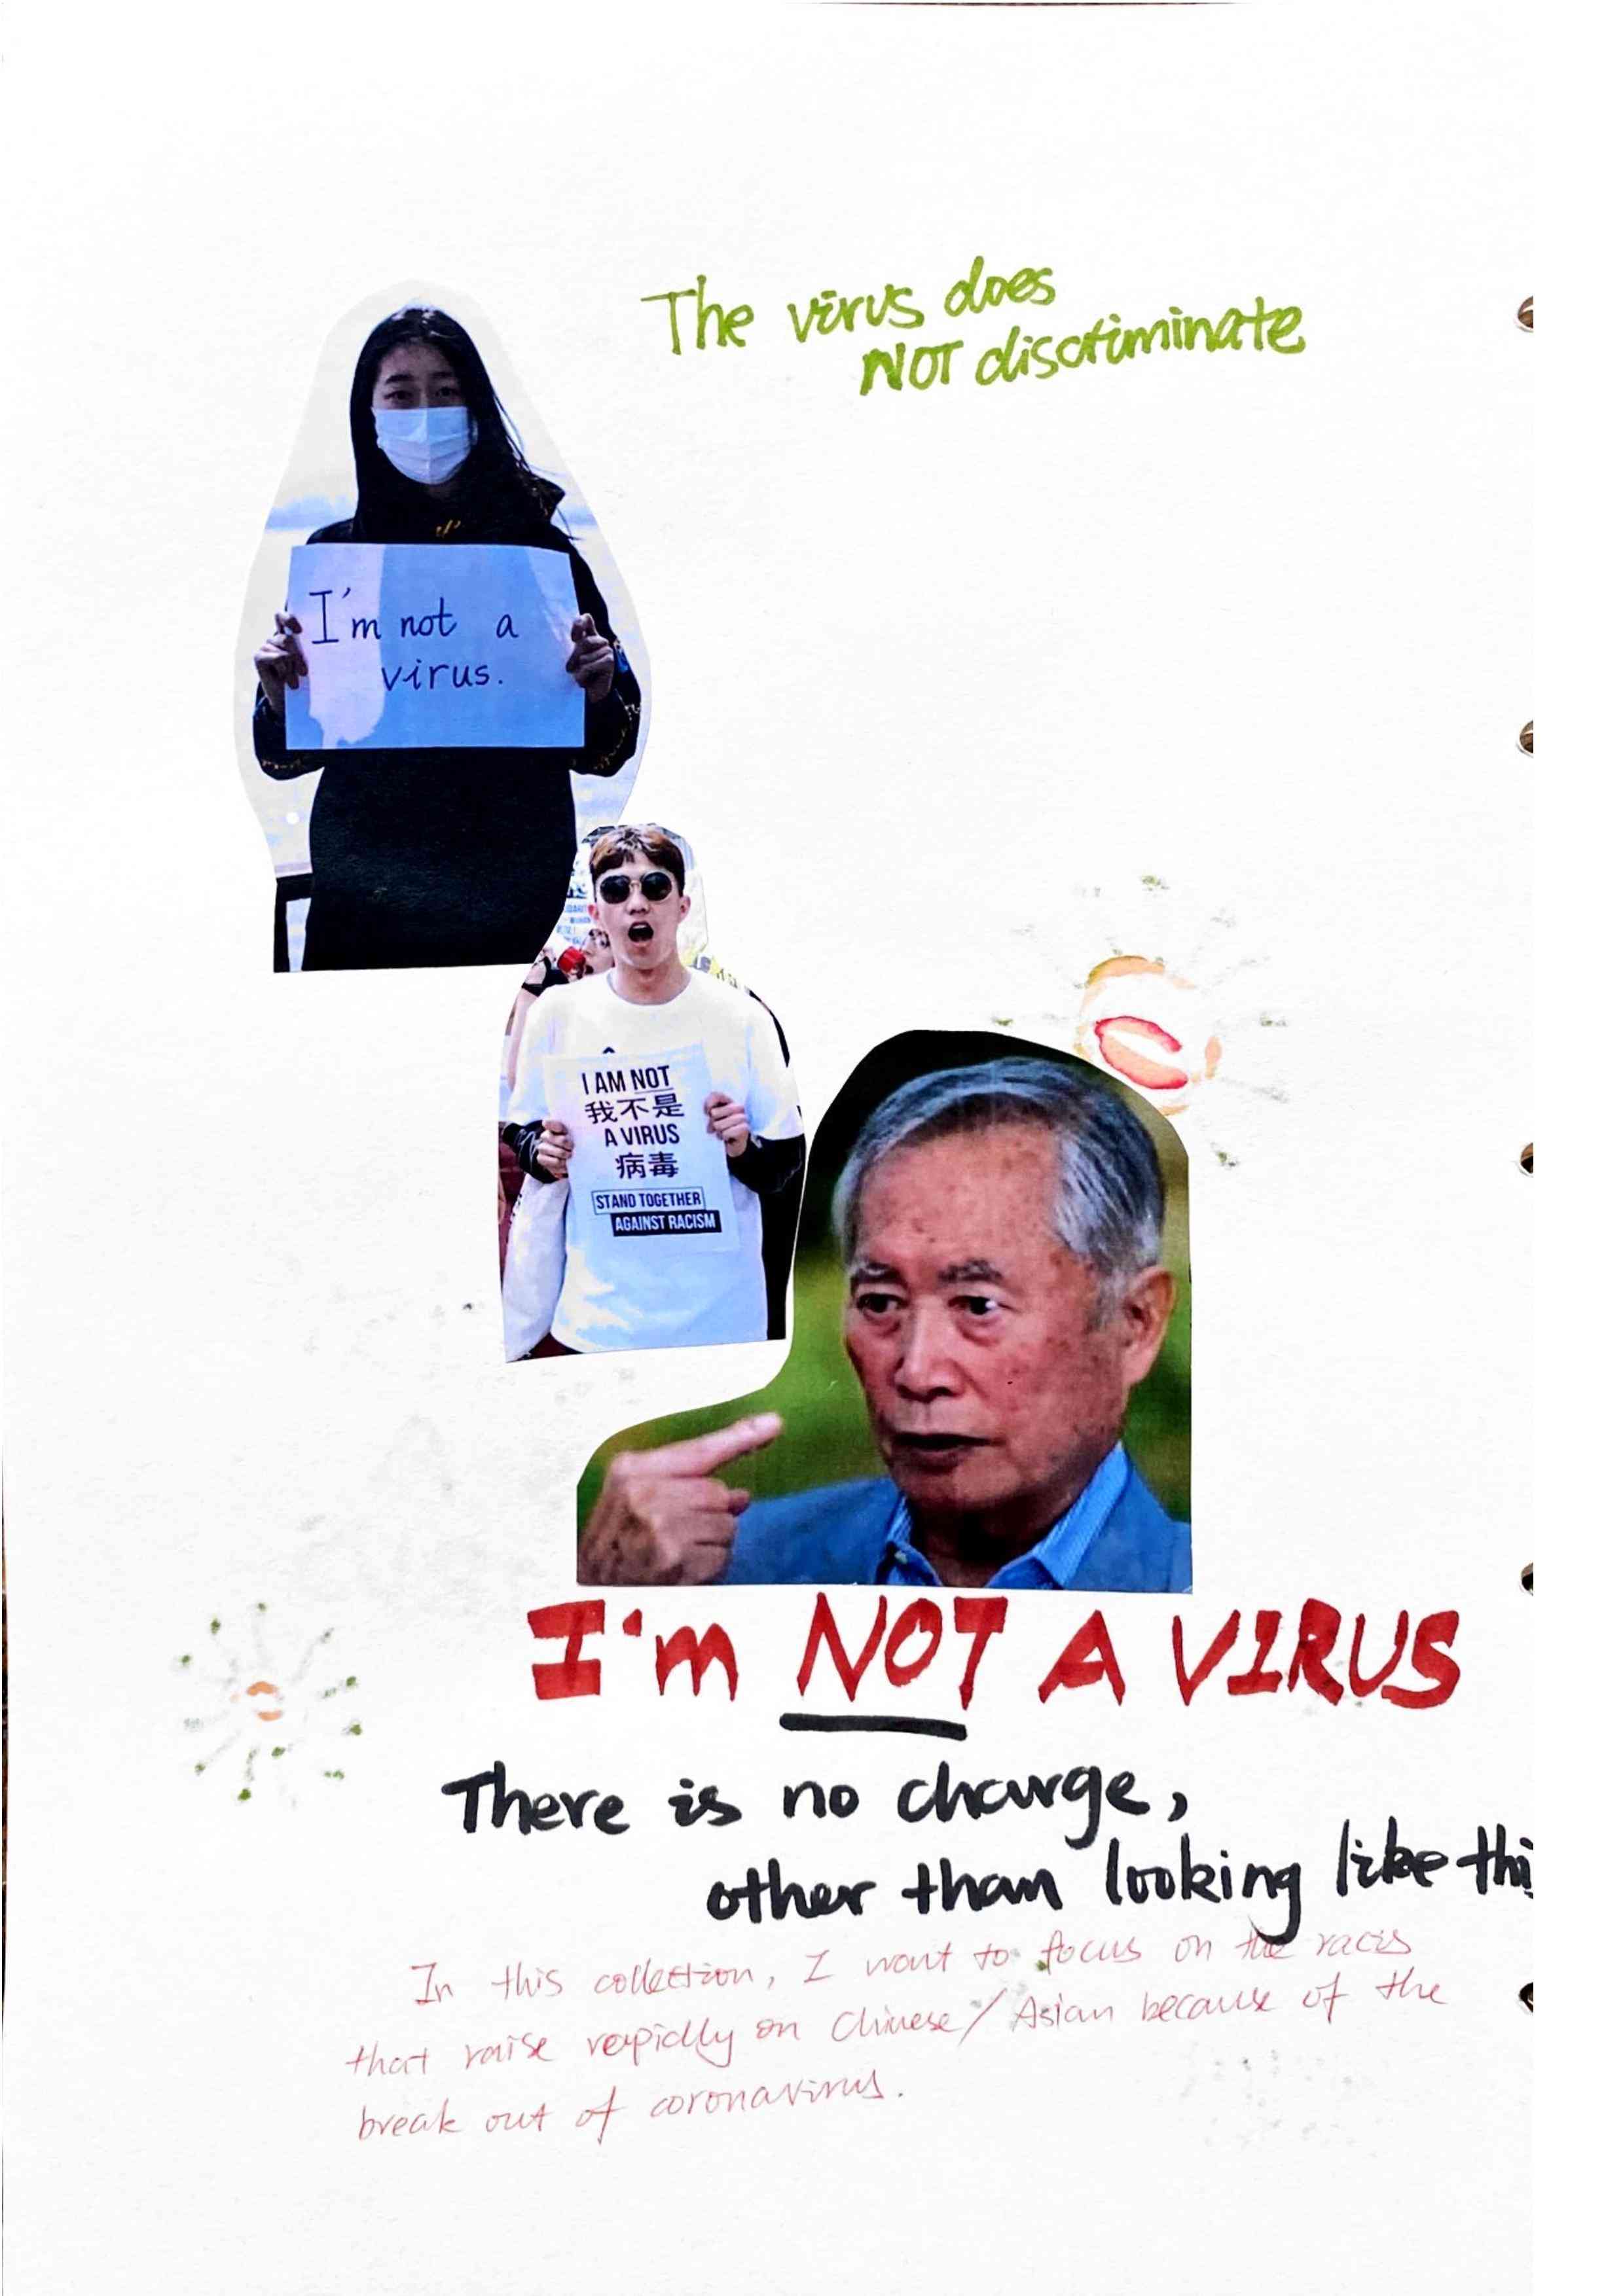 The virus does
NOT discriminate
I'm not a
virus.
I AM NOT
我不是
A VIRUS
病毒
STAND TOGETHER
AGAINST RACISM
I'm NOT A VIRUS
There is no charge,
other than looking like thi
In this collection, I want to focus on the racis
that raise rapidly on Chinese/Asian because of the
break out of coronavirus.